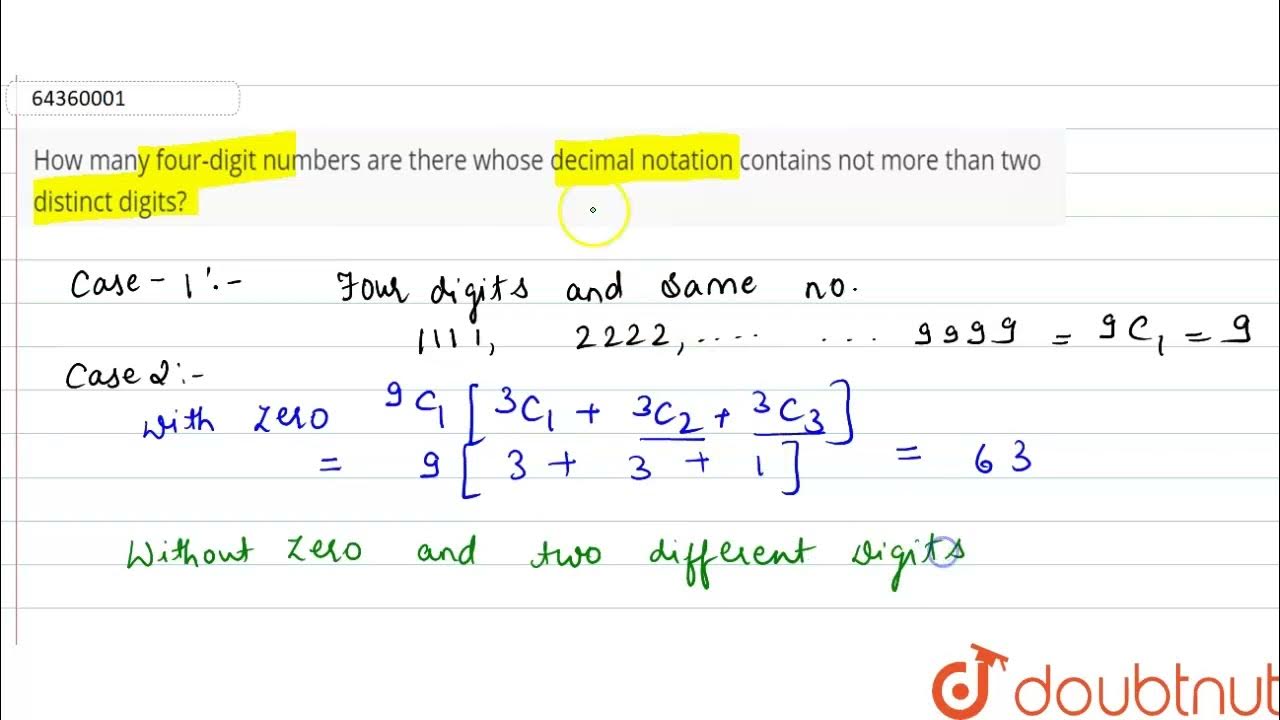 64360001
How many four-digit numbers are there whose decimal notation contains not more than two
distinct digits?
Case - 1 :- Four digits and same no.
1111, 2222, .... ... 9999 = 9C1 = 9
Case 2 :-
With zero 9C1 [ 3C1 + 3C2 + 3C3 ]
= 9 [ 3 + 3 + 1 ] = 63
Without zero and two different digits
doubtnut